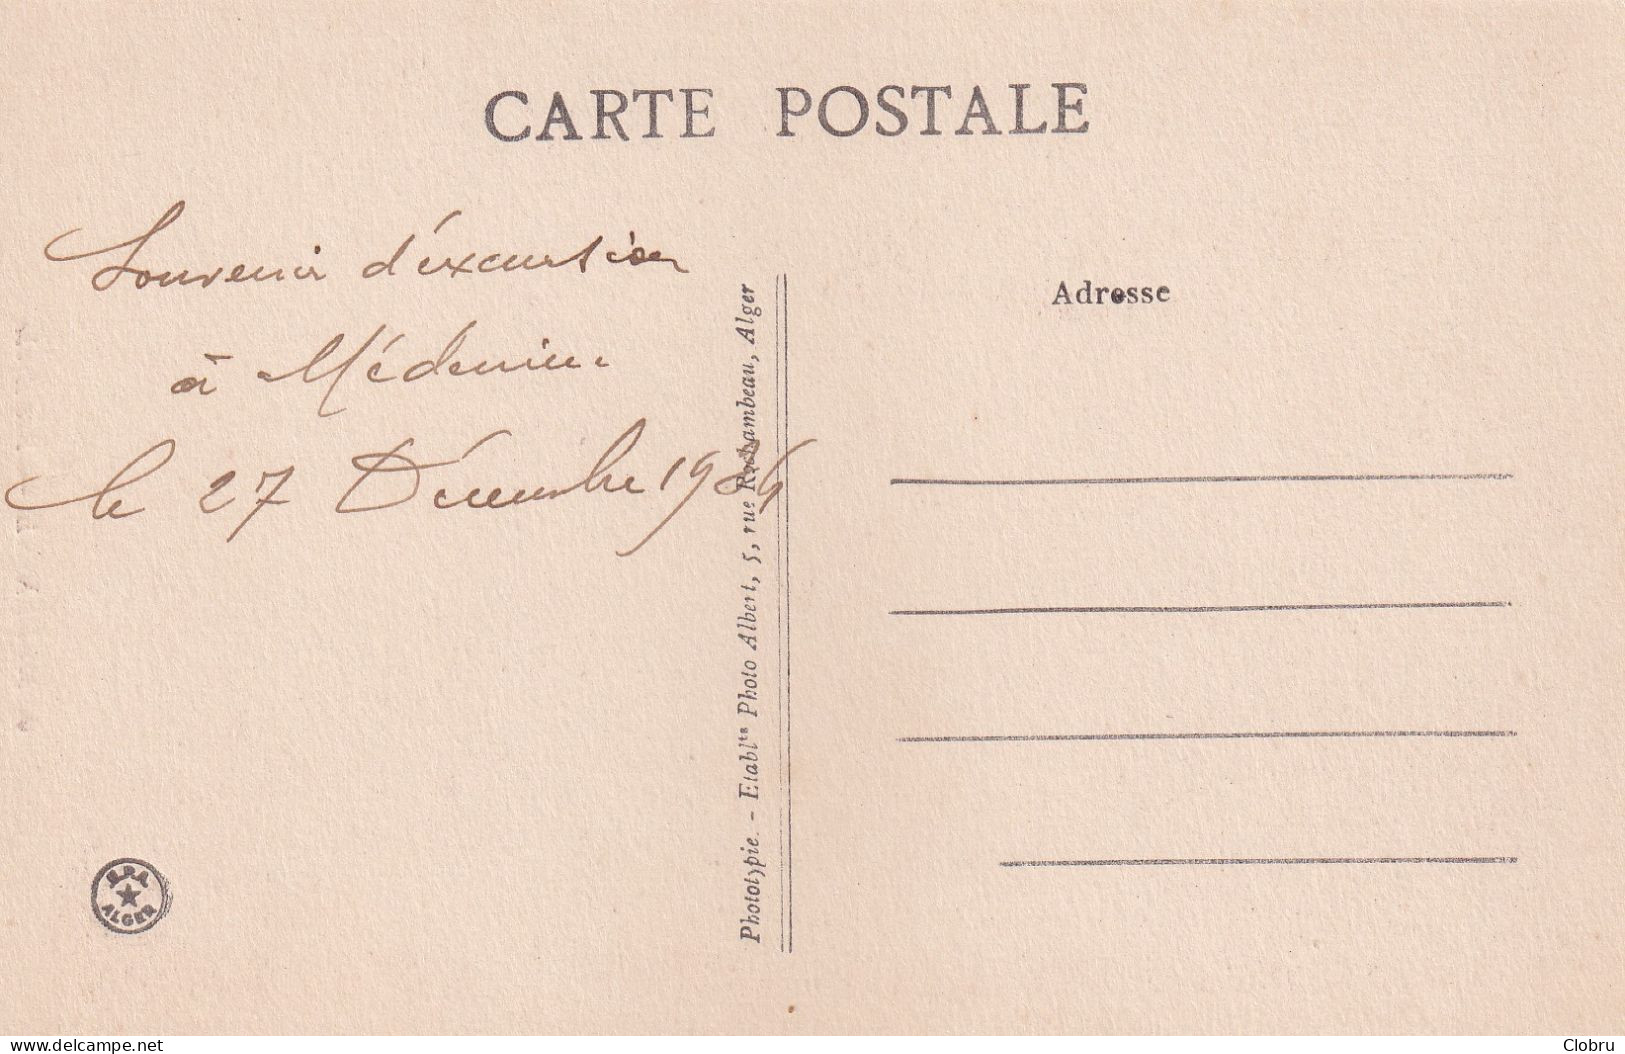 CARTE POSTALE
Souvenir d'éxcursion
à Médenine
le 27 Décembre 19
Adresse
Phototypie. - Etabl<sup>ts</sup> Photo Albert, 5, rue Rochambeau, Alger
E.P.A.
ALGER
delcampe.net
Clobru